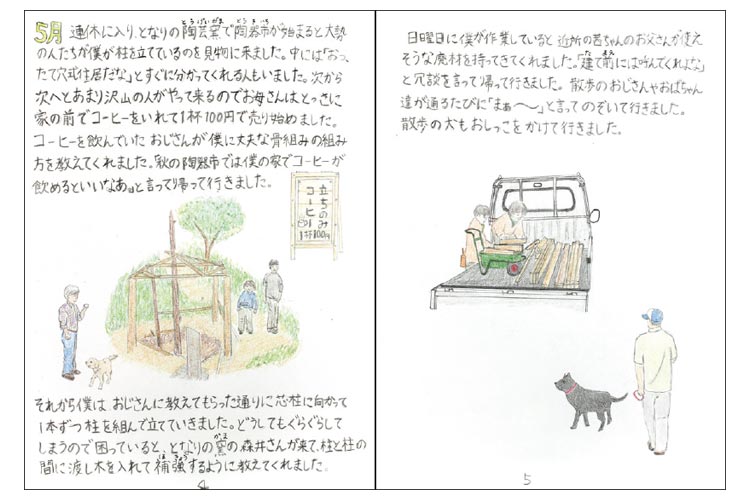 5月 連休に入り、となりの陶芸窯で陶器市が始まると大勢
の人たちが僕が柱を立てているのを見物に来ました。中には「おっ、
たて穴式住居だな」とすぐに分かってくれる人もいました。次から
次へとあまり沢山の人がやって来るのでお母さんは、とっさに
家の前でコーヒーをいれて1杯100円で売り始めました。
コーヒーを飲んでいたおじさんが僕に丈夫な骨組みの組み
方を教えてくれました。「秋の陶器市では僕の家でコーヒーが
飲めるといいなあ。」と言って帰って行きました。
立ちのみ
コーヒー
1杯100円
それから僕は、おじさんに教えてもらった通りに芯柱に向かって
1本ずつ柱を組んで立てていきました。どうしてもぐらぐらして
しまうので困っていると、となりの窯の森井さんが来て、柱と柱の
間に渡し木を入れて補強するように教えてくれました。
4
日曜日に僕が作業していると近所の茜ちゃんのお父さんが使え
そうな廃材を持ってきてくれました。「建て前には呼んでくれよな」
と冗談を言って帰って行きました。散歩のおじさんやおばちゃん
達が通るたびに「まぁ〜〜」と言ってのぞいて行きました。
散歩の犬もおしっこをかけて行きました。
5